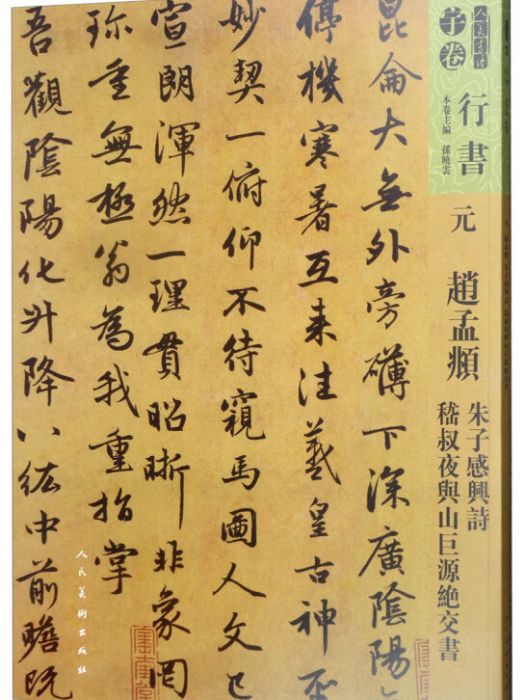 人美書譜
宇卷
行書
本卷主編 孫曉雲
元 趙孟頫
朱子感興詩
嵇叔夜與山巨源絶交書
昆侖大無外旁礴下深廣陰陽
停機寒暑互来往羲皇古神
妙契一俯仰不待窺馬圖人文已
宣朗渾然一理貫昭晣非象罔
珍重無極翁為我重指掌
吾觀陰陽化升降八紘中前瞻既
人民美術出版社